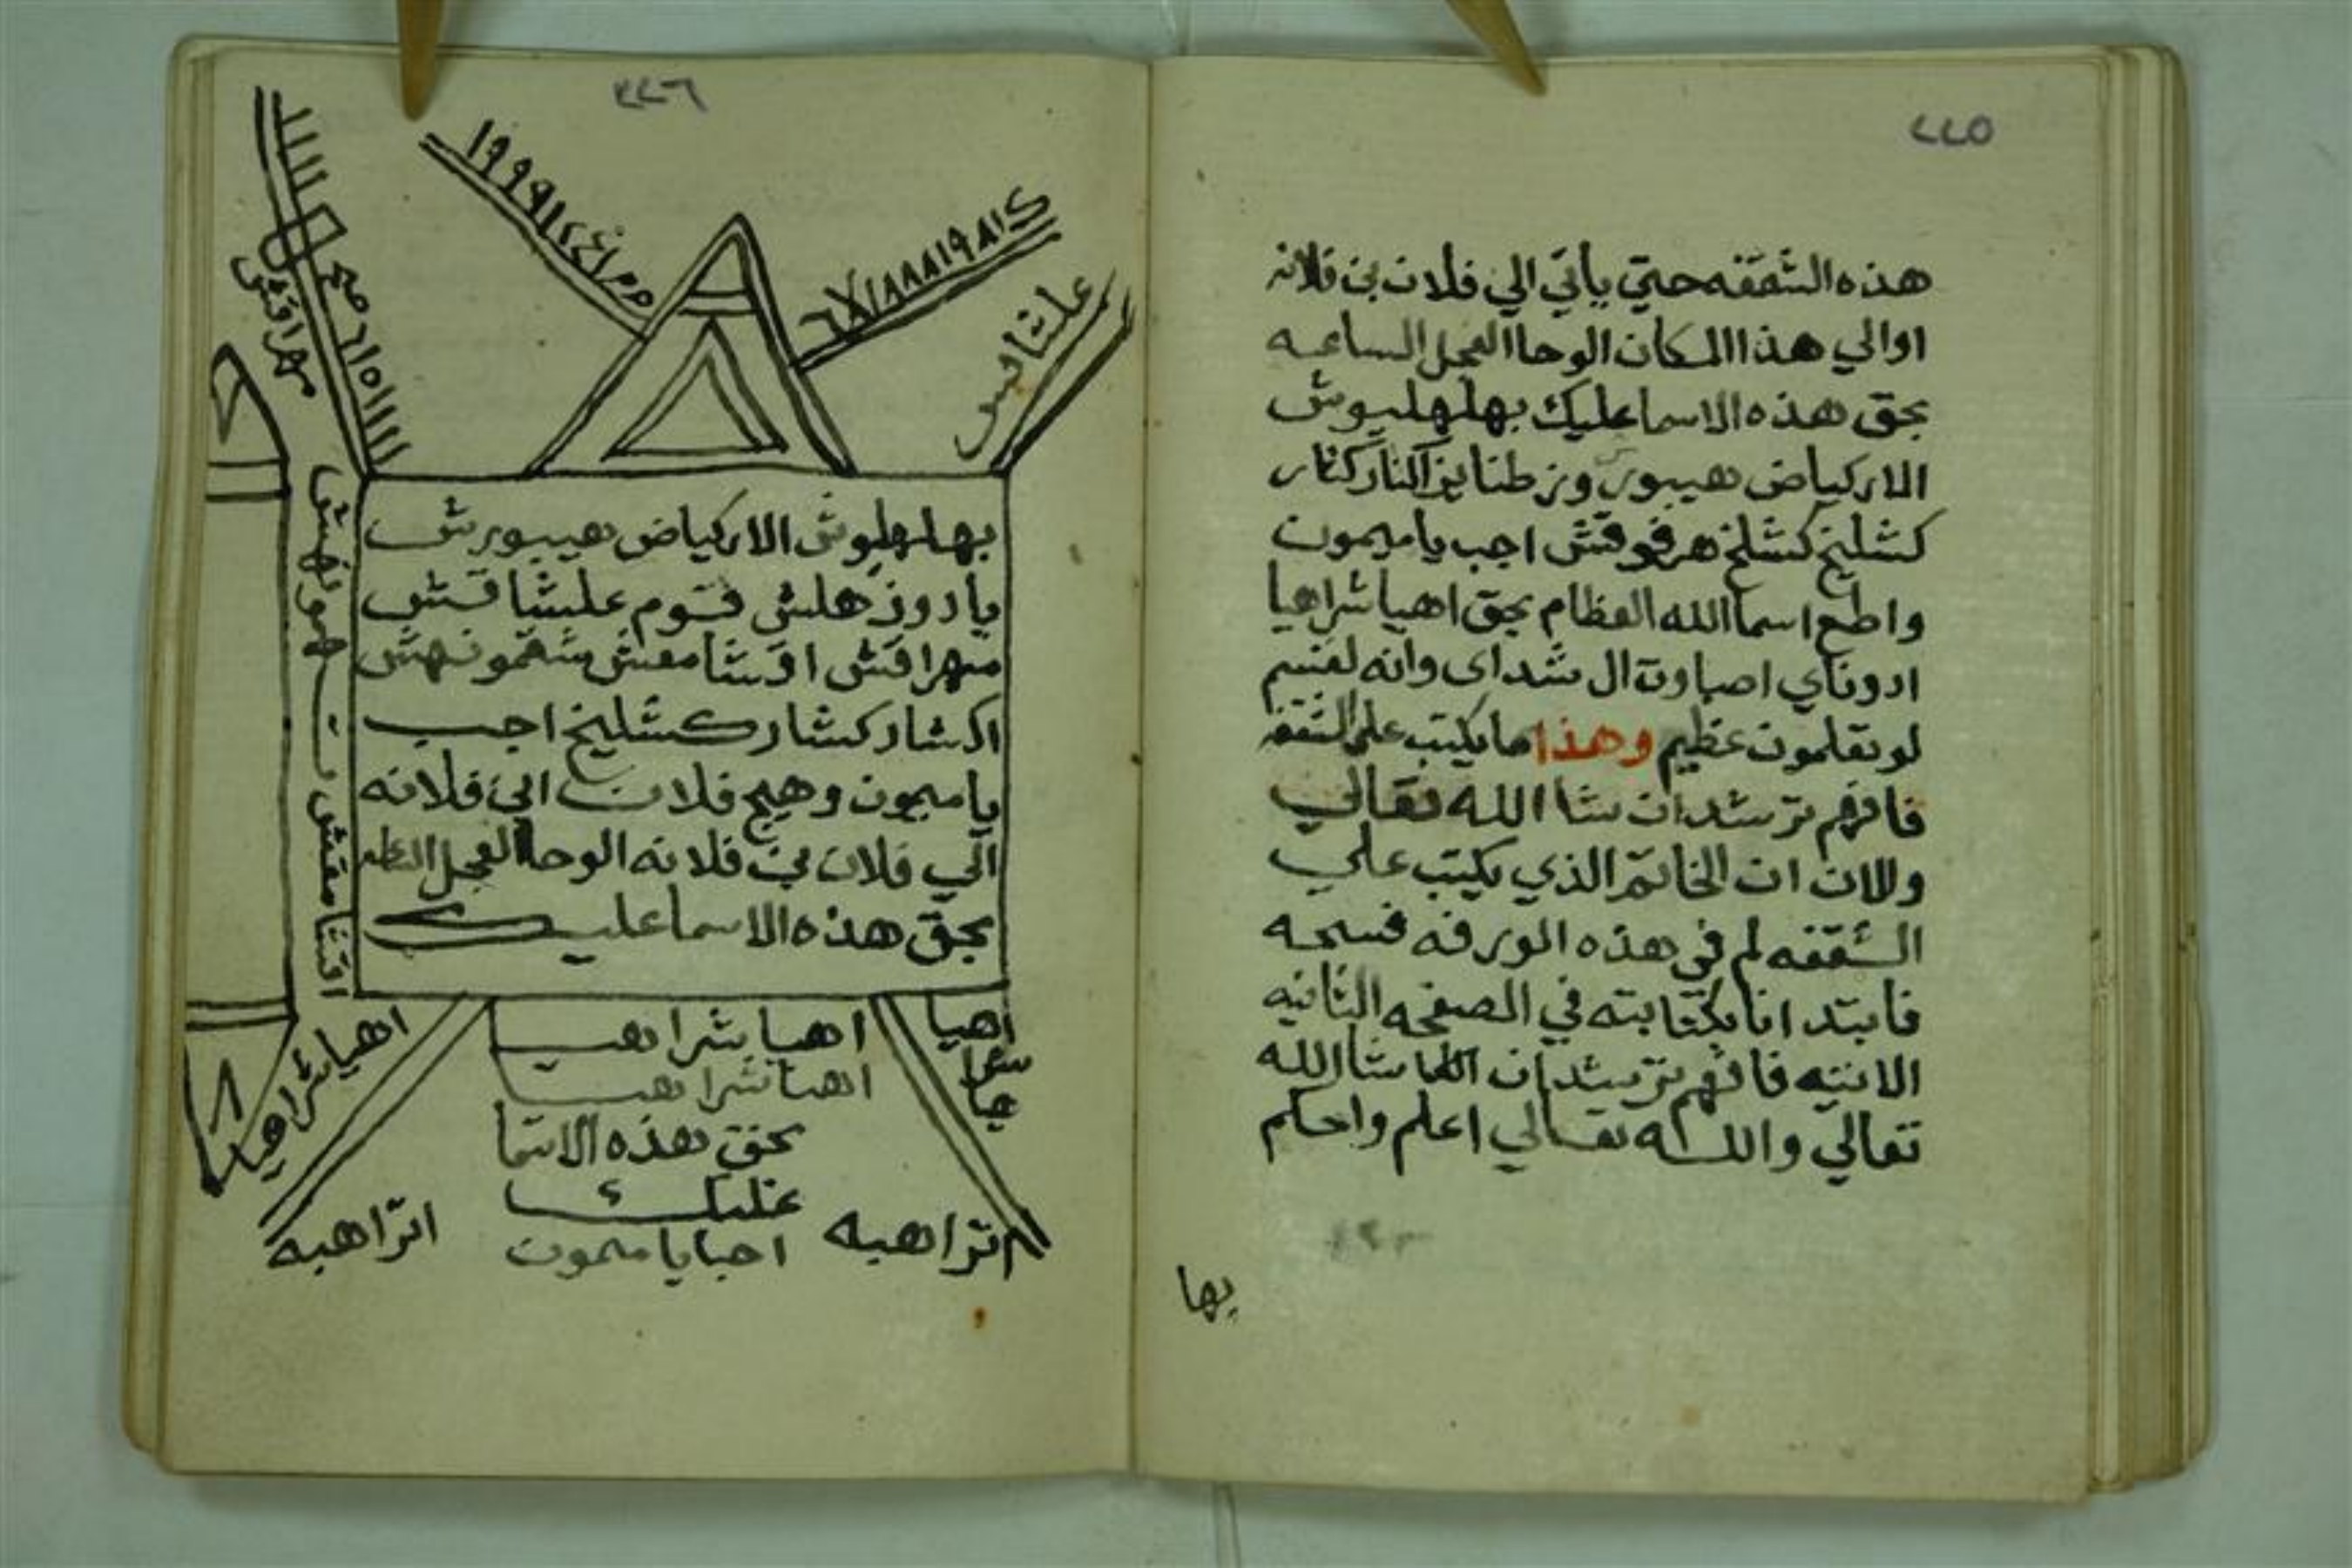 ٢٢٥
هذه الشقفه حتي ياتي الي فلان بن فلانه
اوالي هذا المكان الوحا العجل الساعه
بحق هذه الاسما عليك بهلهليوش
الاركياض هيبورش
كشليخ كشلخ هرقوقش اجب ياميمون
واطع اسما الله العظام بحق اهيا شراهيا
ادوناي اصباوت ال شداى وانه لقسم
لو تعلمون عظيم وهذا ما يكتب على الشقفه
فافهم ترشد ان شا الله تعالي
والان ان الخاتم الذي يكتب علي
الشقفه لم في هذه الورقه فسحه
فابتدانا بكتابته في الصفحه الثانيه
الاتيه فافهم ترشدان شا الله
تعالي والله تعالي اعلم واحكم
بها
٢٢٦
علشاقس
مهراقش
بهلهليوش الاركياض هيبورش
يادوز هلش قوم علشاقش
مهراقش اقشامقش شقمونهش
اكشار كشار كشليخ اجب
ياميمون وهيج فلان الي فلانه
الي فلان بن فلانه الوحا العجل
بحق هذه الاسما عليك
اقشامقش
اهيا شراهيا
اهيا شراهيا
اهيا شراهيـ
اهيا شراهيـ
بحق هذه الاسما
عليك
اتراهيه
اتراهيه
اجب يا ميمون